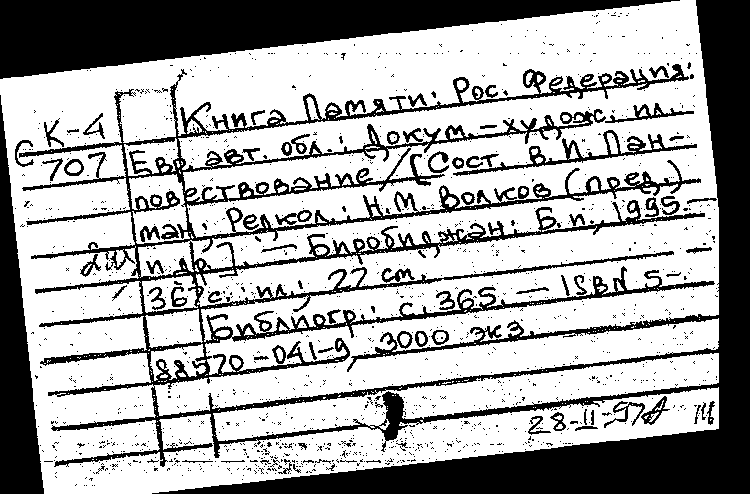 Книга Памяти: Рос. Федерация:
С К-4
707
Евр. авт. обл.: Докум.-худож. ил.
повествование / [Сост. В. И. Пан-
ман; Редкол.: Н.М. Волков (пред.)
и др.]. — Биробиджан: Б.и., 1995. —
367 с.: ил.; 22 см. —
Библиогр.: с. 365. — ISBN 5-
88570-041-9, 3000 экз.
28-II-97